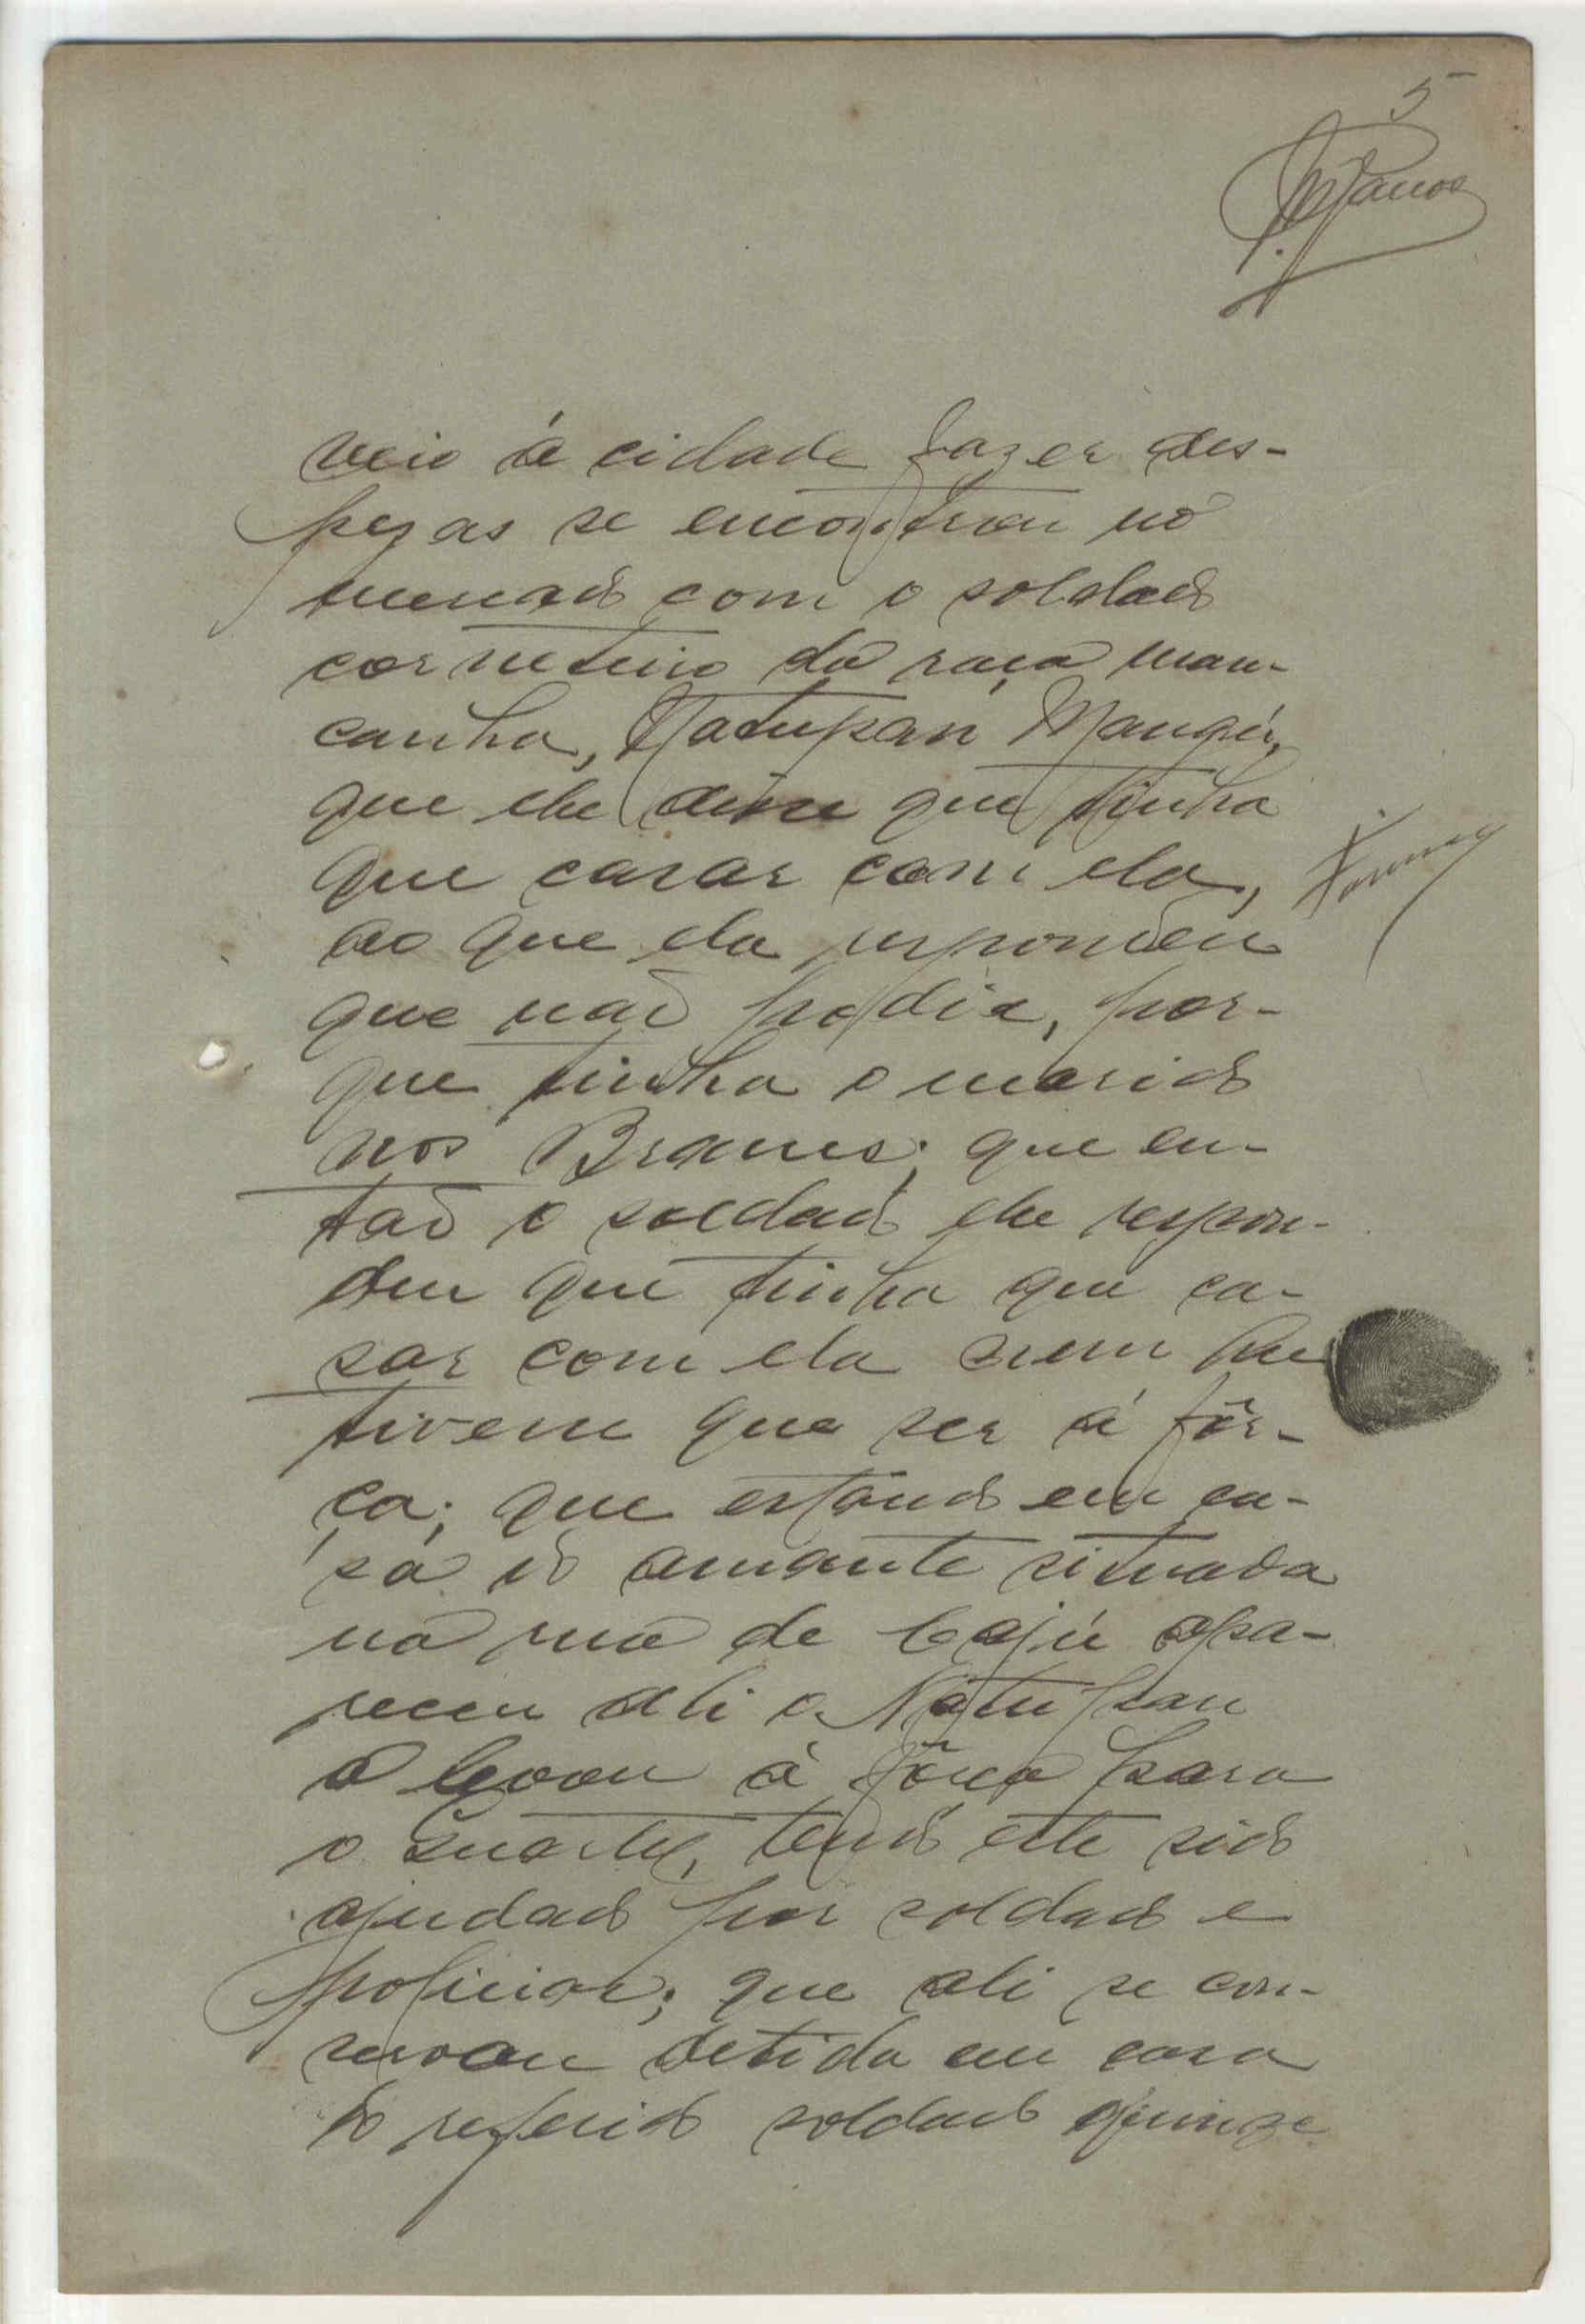 5
veio á cidade fazer des-
pezas se encontrou no
mercado com o soldado
corneteiro da raça man-
canha, Natupan Mangú,
que lhe disse que tinha
que casar com ela,
ao que ela respondeu
que não podia, por-
que tinha o marido
nos Brames; que en-
tão o soldado lhe respon-
deu que tinha que ca-
sar com ela nem que
tivesse que ser á fôr-
ça; que estando em ca-
sa do amante situada
na rua de Cajú apa-
receu ali o Natupan
a levou á fôrça para
o quartel, tendo este sido
ajudado por soldado e
policiar; que ali se con-
servou detida em casa
do referido soldado quinze